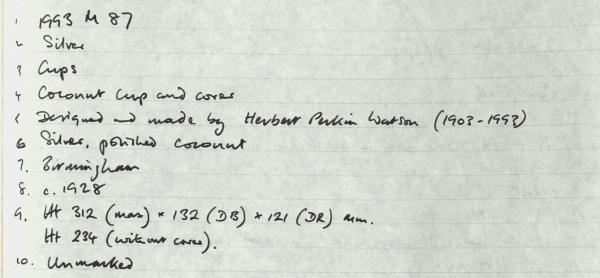 1 1993 M 87
2 Silver
3 Cups
4 Coconut cup and cover
5 Designed and made by Herbert Perkin Watson (1903-1993)
6 Silver, polished coconut
7. Birmingham
8. c. 1928
9. Ht 312 (max) × 132 (DB) × 121 (DR) mm.
Ht 234 (without cover).
10. Unmarked